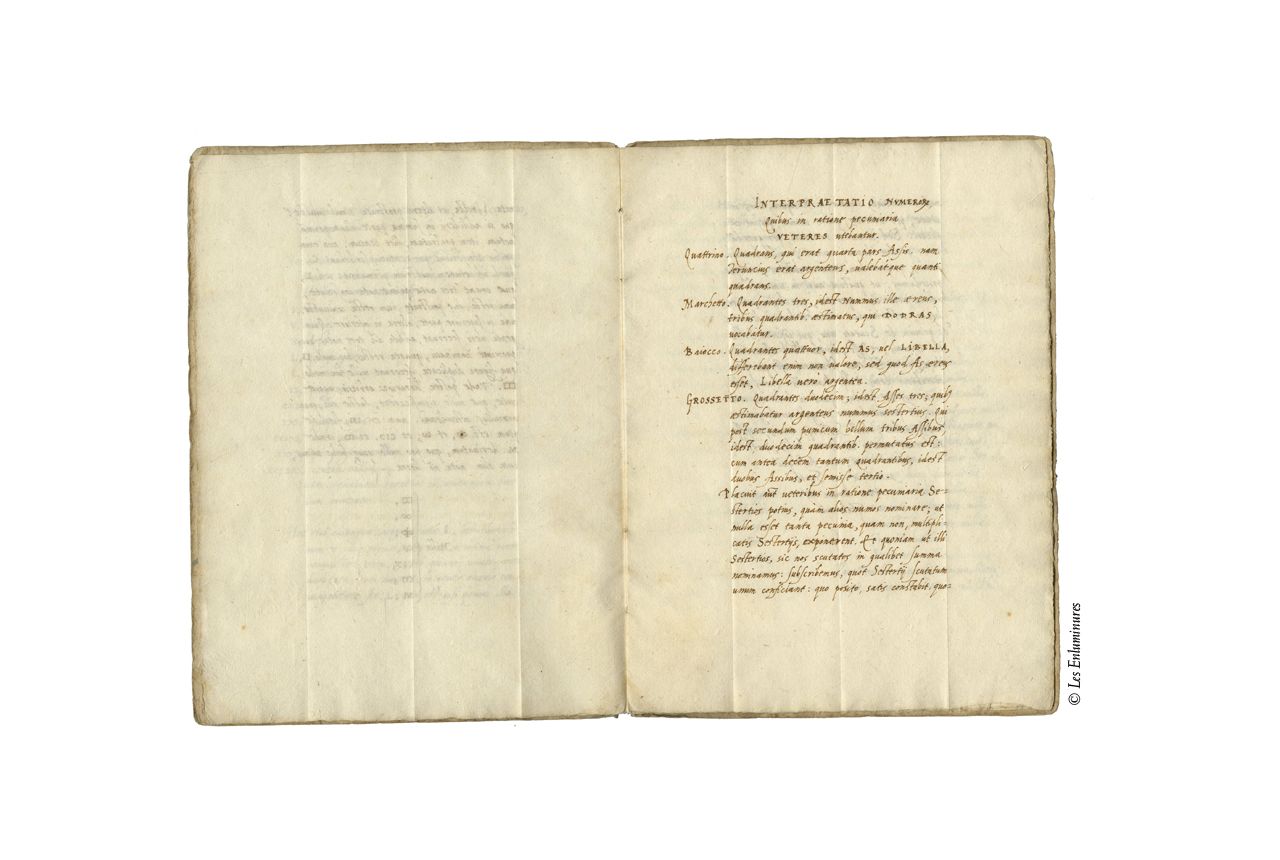 INTERPRAETATIO NVMERORꝜ
Quibus in ratione pecuniaria
VETERES utebantur.
Quattrino. Quadrans, qui erat quarta pars Assis. nam
Teruncius erat argenteus, ualebatque quanti
quadrans.
Marchetto. Quadrantes tres, idest Nummus ille æreus,
tribus quadrantib. æstimatus, qui DODRAS
uocabatur.
Baiocco. Quadrantes quattuor, idest AS, uel LIBELLA,
differebant enim non ualore, sed quod As æreus
esset, Libella uero argentea.
GROSSETTO. Quadrantes duodecim; idest Asses tres; quibꝫ
æstimabatur argenteus nummus sestertius. Qui
post secundum punicum bellum tribus Assibus,
idest duodecim quadrantib. permutatus est:
cum antea decem tantum quadrantibus, idest
duobus Assibus, et semisse tertio.
Placuit aut ueteribus in ratione pecuniaria Se-
stertios potius, quàm alios numos nominare; ut
nulla esset tanta pecunia, quam non, multipli-
catis Sestertijs, exponerent. Et quoniam ut illi
Sestertios, sic nos scutatos in qualibet summa
nominamus: subscribemus, quot Sestertij scutatum
unum conficiant: quo posito, satis constabit, quo-
© Les Enluminures